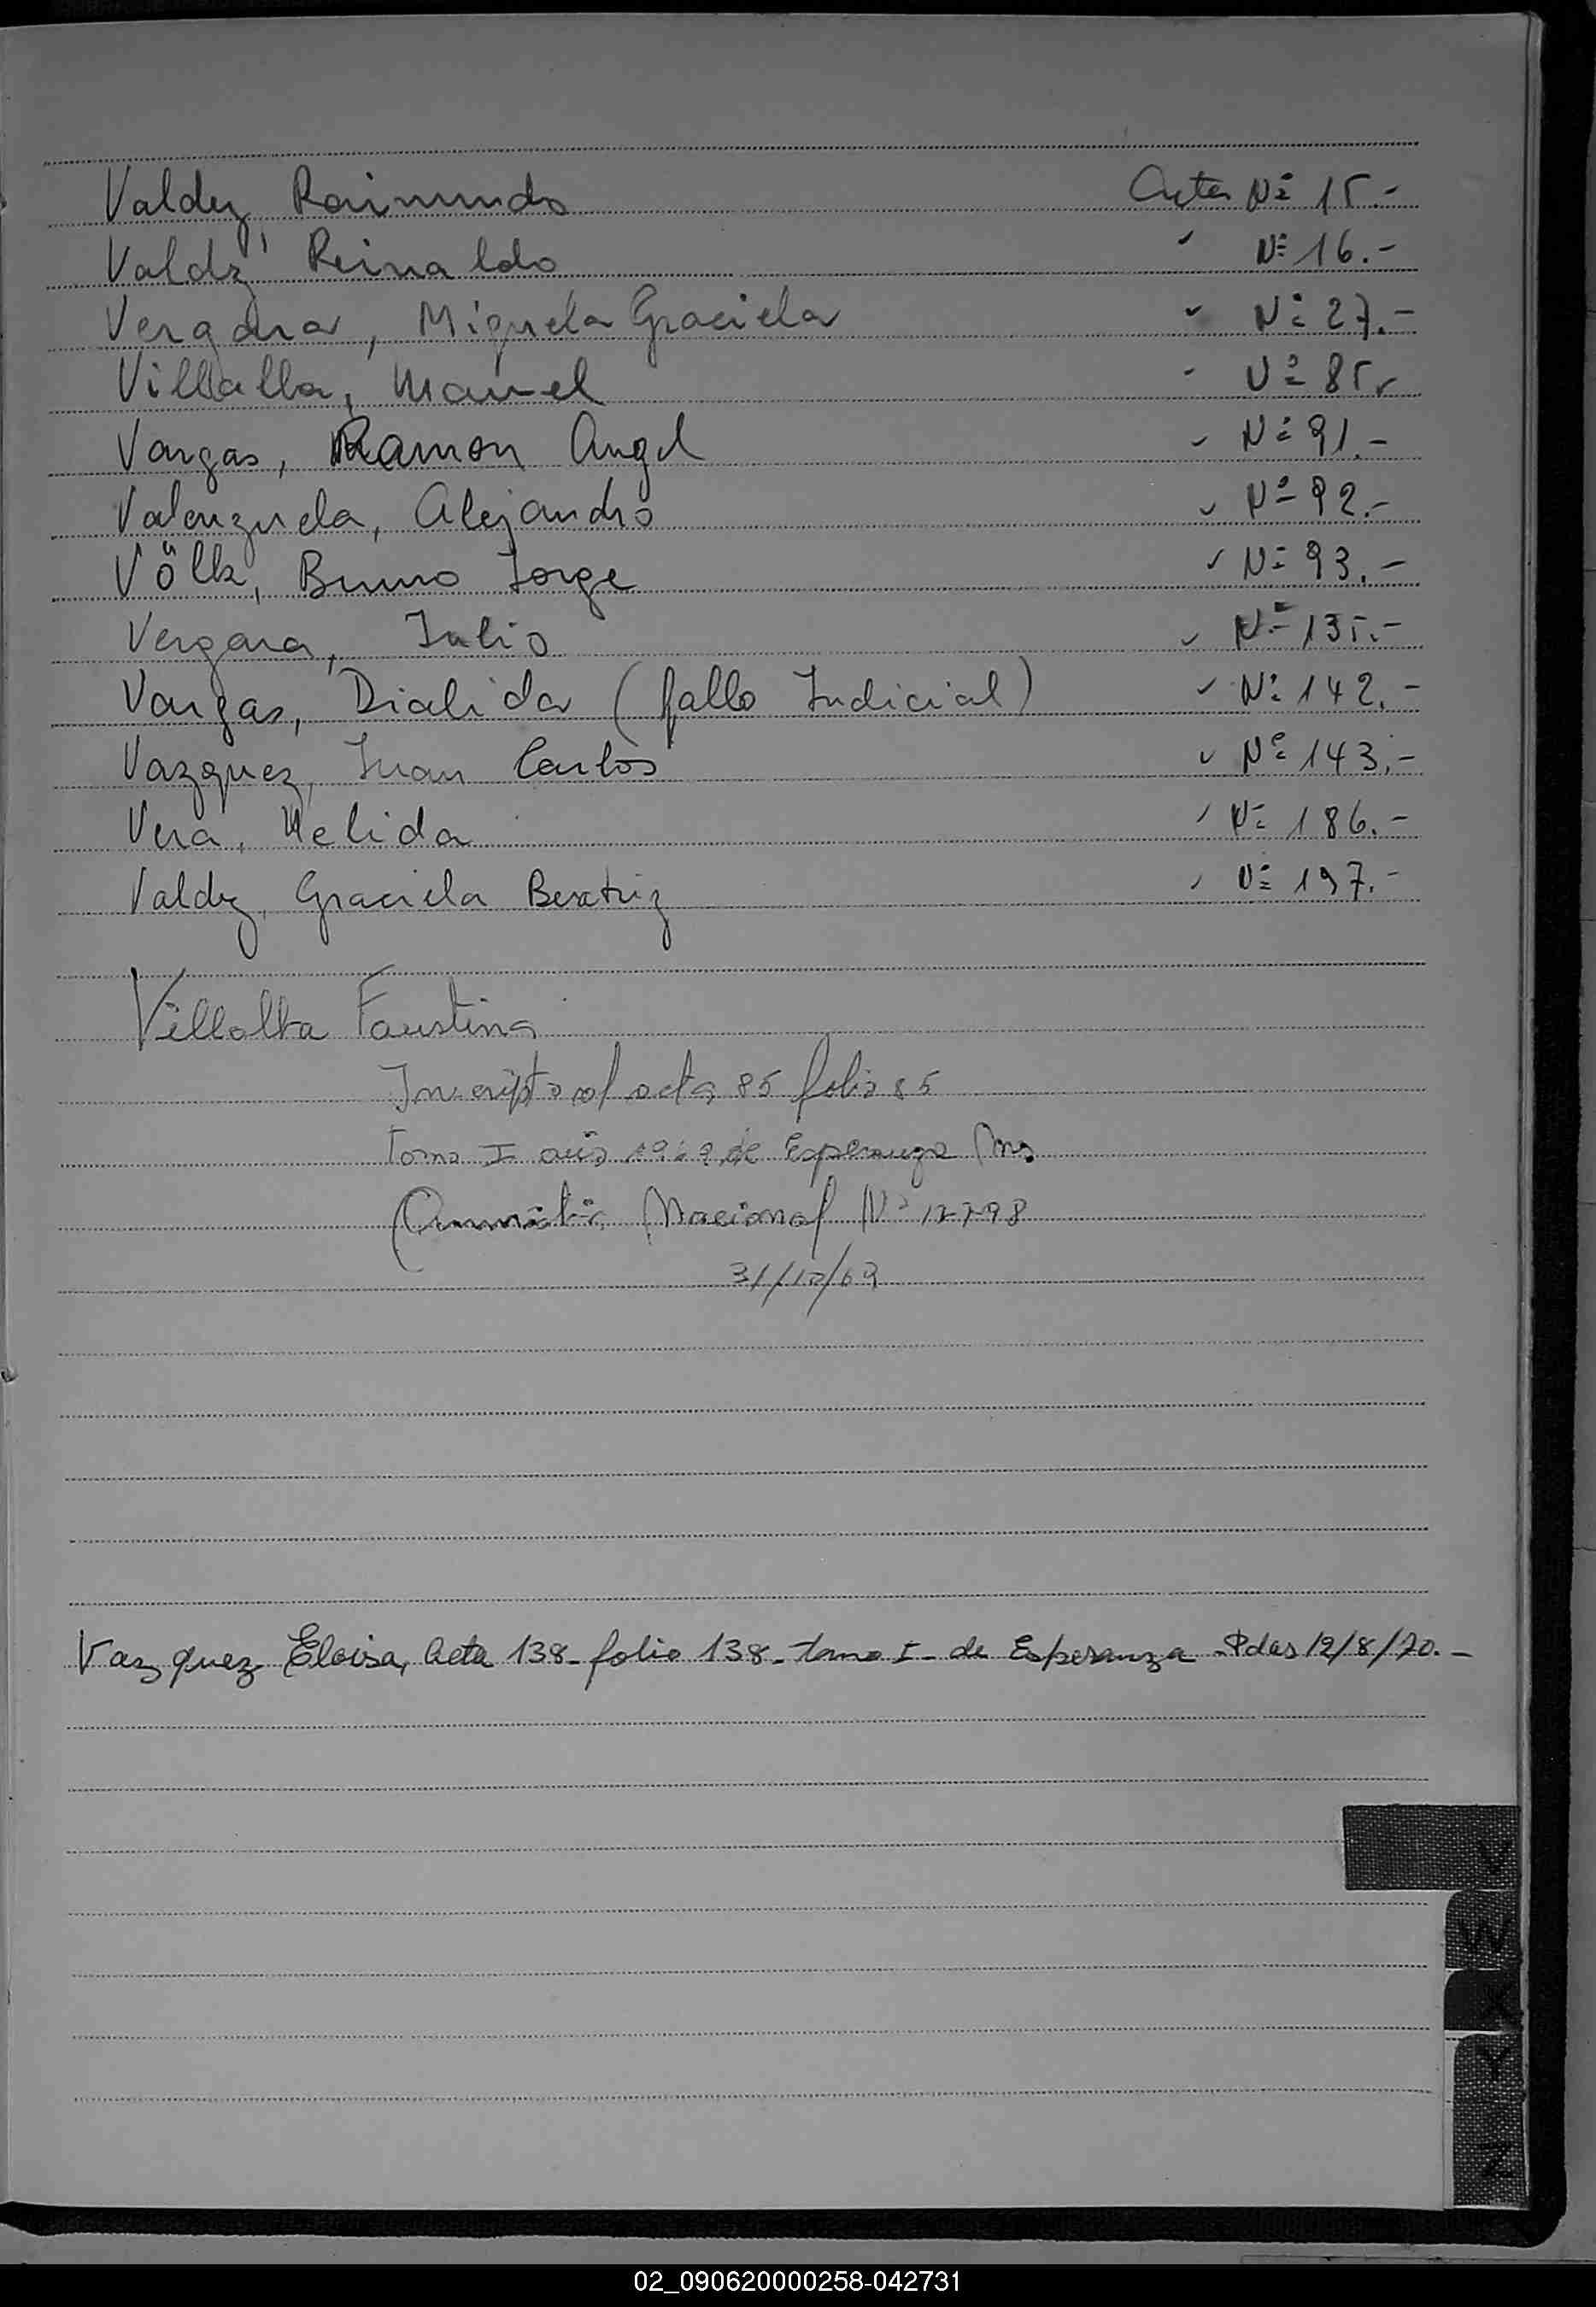 Valdez, Raimundo Acta Nº 15.-
Valdez, Reinaldo " Nº 16.-
Vergara, Miguela Graciela " Nº 27.-
Villalba, Manuel " Nº 85.-
Vargas, Ramon Angel " Nº 91.-
Valenzuela, Alejandro " Nº 92.-
Völk, Bruno Jorge " Nº 93.-
Vergara, Julio " Nº 135.-
Vargas, Dialida (fallo Judicial) " Nº 142.-
Vazquez, Juan Carlos " Nº 143.-
Vera, Nelida " Nº 186.-
Valdez, Graciela Beatriz " Nº 197.-
Villalba Faustina
Inscripta al acta 85 folio 85
Tomo I año 1969 de Esperanza Mns.
Amnistía Nacional Nº
31/12/69
Vazquez Eloisa, Acta 138- folio 138- tomo I- de Esperanza - Pdas 12/8/70.-
V
W
X
Y
Z
02_090620000258-042731